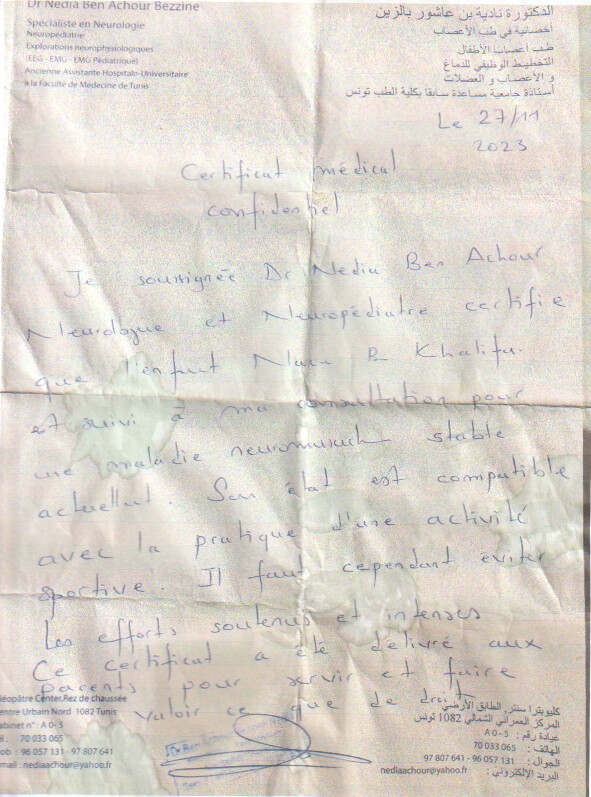 Dr Nedia Ben Achour Bezzine
Spécialiste en Neurologie
Neuropédiatrie
Explorations neurophysiologiques
(EEG - EMG - EMG Pédiatrique)
Ancienne Assistante Hospitalo-Universitaire
à la Faculté de Médecine de Tunis
الدكتورة نادية بن عاشور بالزين
أخصائية في طب الأعصاب
طب أعصاب الأطفال
التخطيط الوظيفي للدماغ
و الأعصاب و العضلات
أستاذة جامعية مساعدة سابقا بكلية الطب تونس
Le 27/11
2023
Certificat médical
confidentiel
Je soussignée Dr Nedia Ben Achour
Neurologue et Neuropédiatre certifie
que l'enfant B Khalifa.
est suivi à ma consultation pour
une maladie neuromuscul stable
actuellmt. Son état est compatible
avec la pratique d'une activité
sportive. Il faut cependant éviter
Les efforts soutenus et intenses
Ce certificat a été délivré aux
parents pour servir et faire
valoir ce que de droit
léopâtre Center, Rez de chaussée
entre Urbain Nord 1082 Tunis
abinet n° : A 0 - 5
él : 70 033 065
ob : 96 057 131 - 97 807 641
mail : nediaachour@yahoo.fr
Dr Ben
كليوبترا سنتر, الطابق الأرضي
المركز العمراني الشمالي 1082 تونس
عيادة رقم : A 0 - 5
الهاتف : 70 033 065
الجوال : 96 057 131 - 97 807 641
البريد الإلكتروني : nediaachour@yahoo.fr